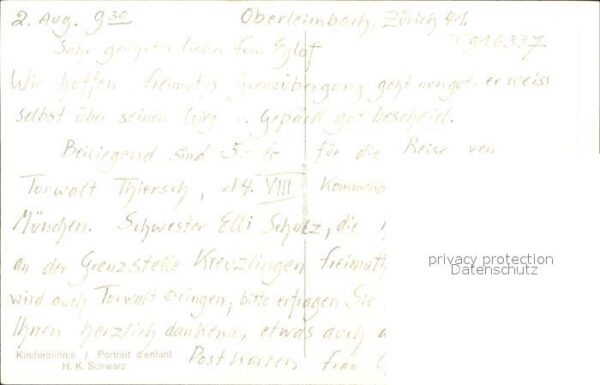 2. Aug. 9³⁰ Oberleimbach, Zürich 4/1.
Sehr geehrte liebe Frau Eglof
Wir hoffen Freimuts Grenzübergang geht er weiss
selbst über seinen Weg u. Gepäck gut bescheid.
Beiliegend sind 5.- für die Reise von
Torwalt Thiersch, 14. VIII
München. Schwester Elli Schulz, die
an der Grenzstelle Kreuzlingen Freimuth
wird auch Torwalt bringen; bitte erfragen Sie
Ihnen herzlich dankend, etwas auch
Postkarten Frau
Kinderbildnis / Portrait d'enfant
H. K. Schwarz
privacy protection
Datenschutz